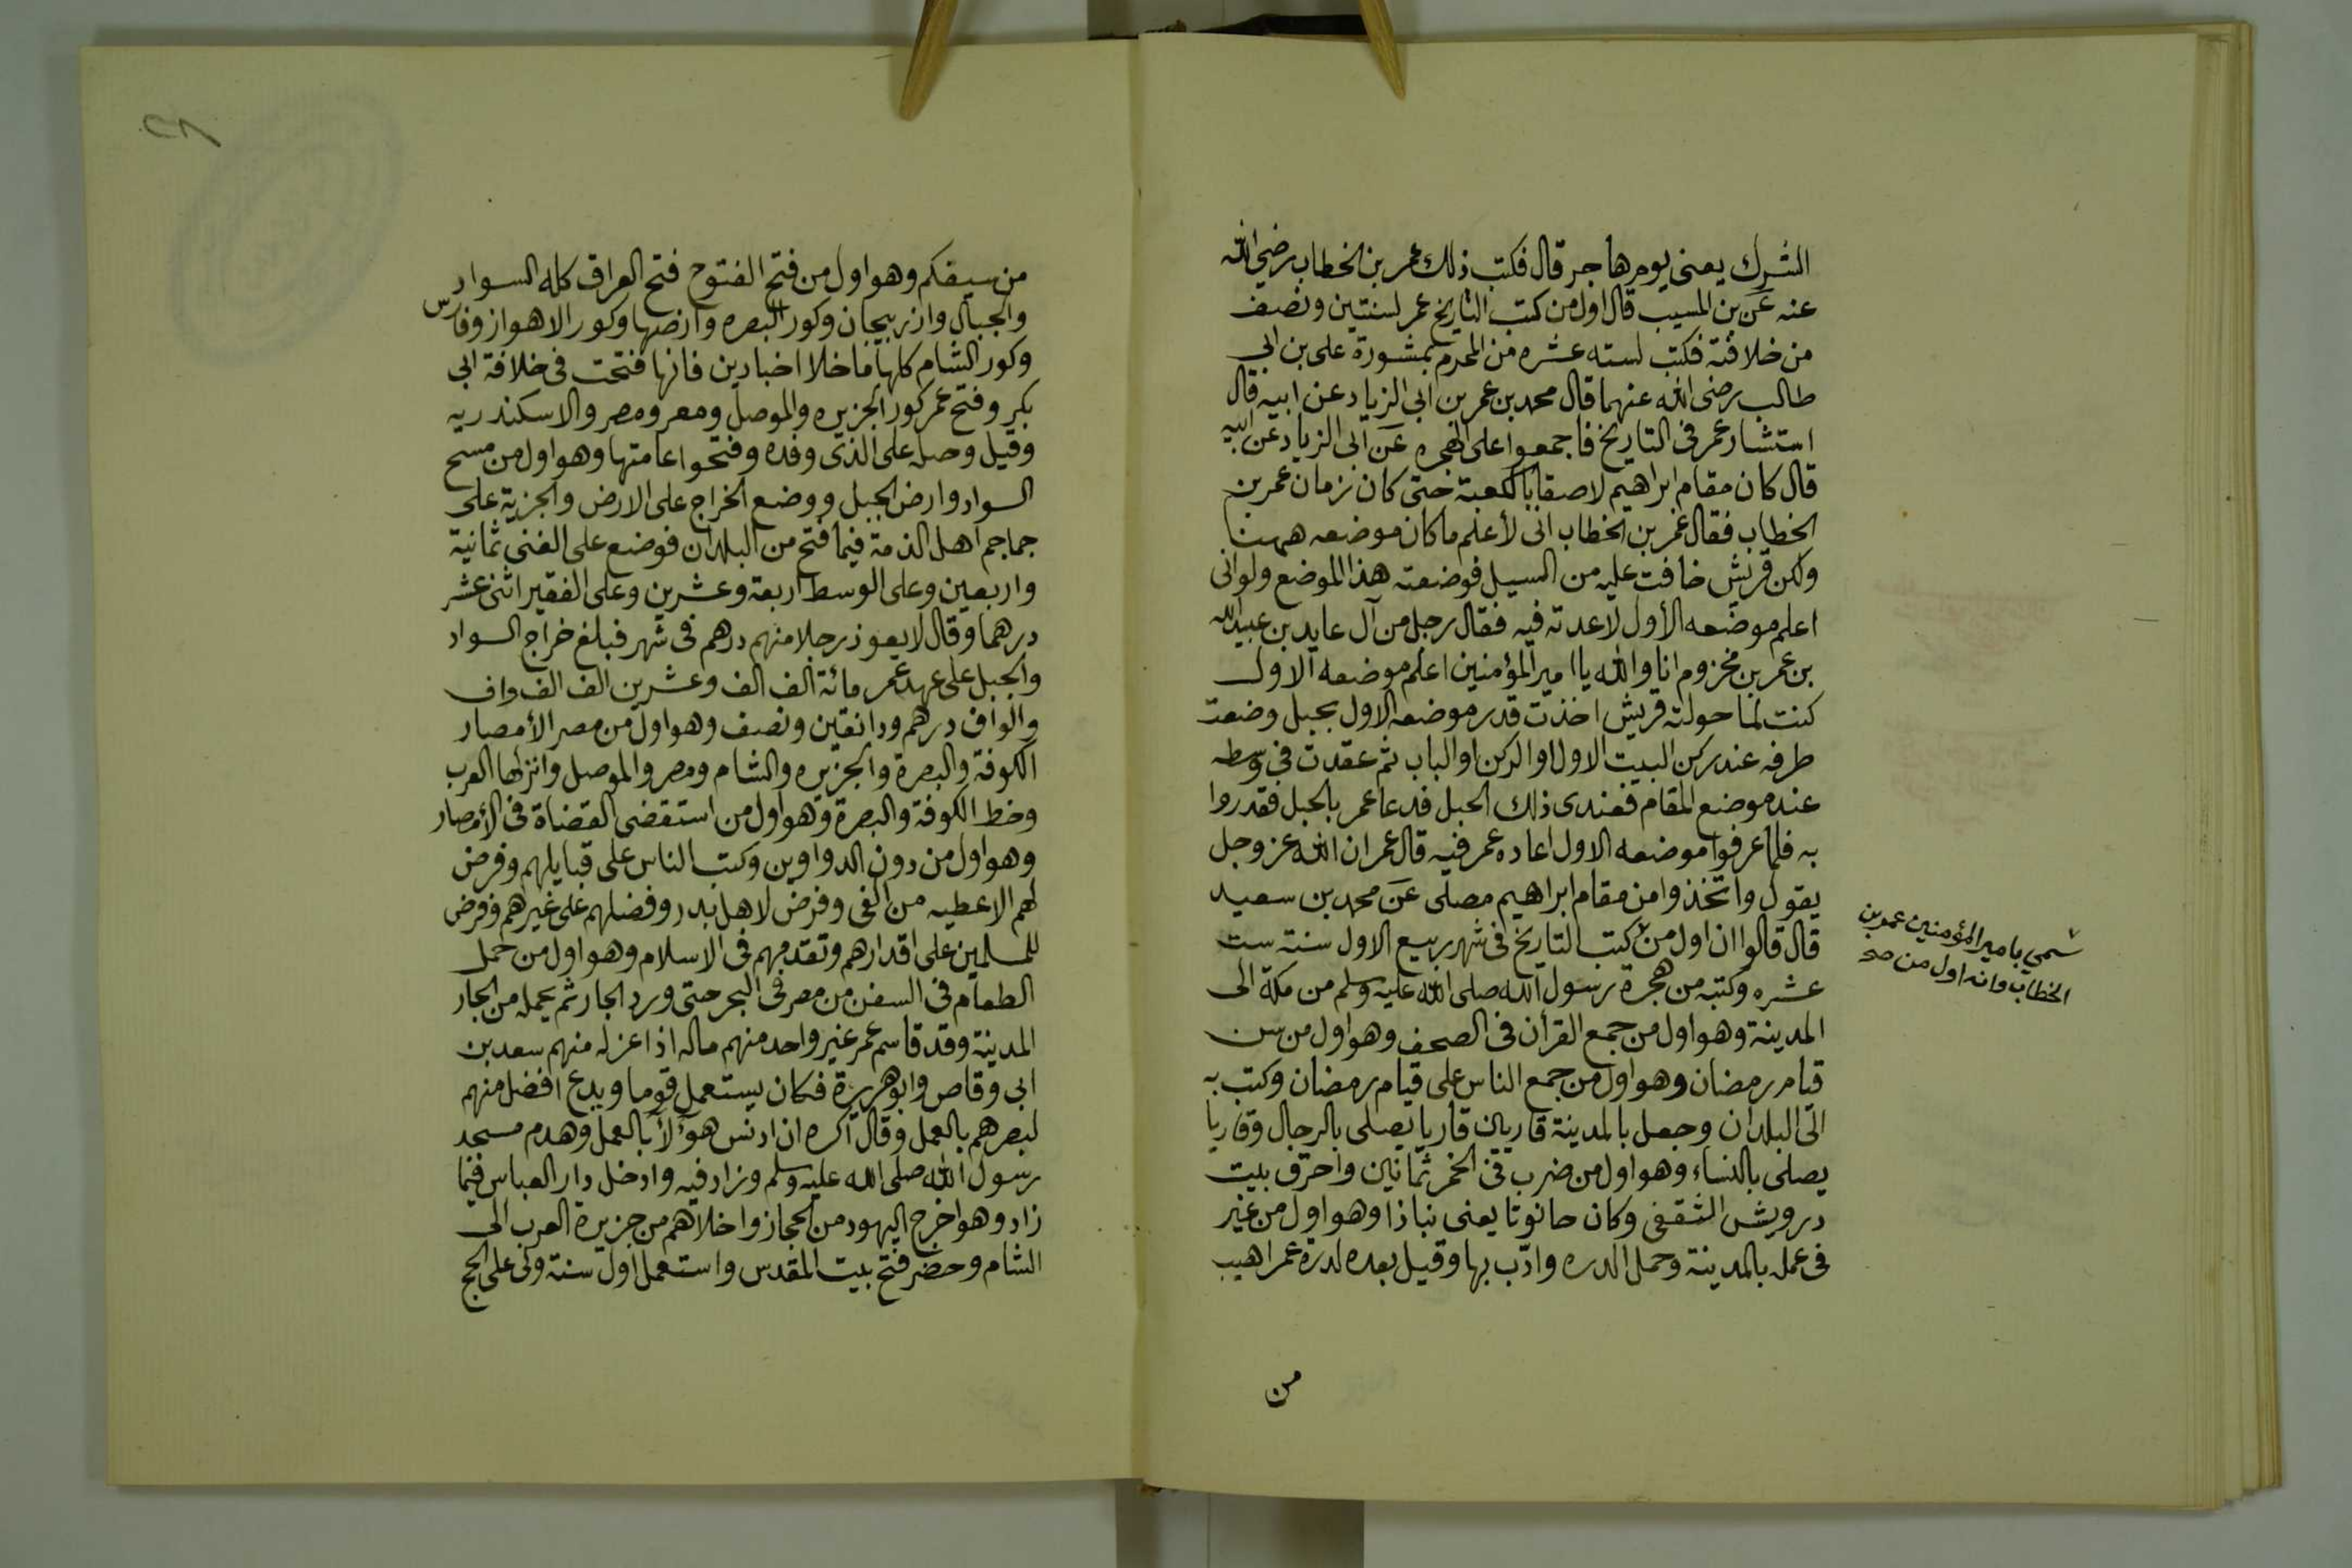 الشرك يعنى يوم هاجر قال فكتب ذلك عمر بن الخطاب رضي الله
عنه عن بن المسيب قال اول من كتب التاريخ عمر لسنتين ونصف
من خلافته فكتب لسته عشره من المحرم بمشورة على بن ابى
طالب رضى الله عنهما قال محمد بن عمر بن ابى الزياد عن ابيه قال
استشار عمر فى التاريخ فاجمعوا على الهجره عن ابى الزياد عن ابيه
قال كان مقام ابراهيم لاصقا بالكعبة حتى كان زمان عمر بن
الخطاب فقال عمر بن الخطاب انى لأعلم ما كان موضعه ههنا
ولكن قريش خافت عليه من السيل فوضعته هذا الموضع ولوانى
اعلم موضعه الأول لاعدته فيه فقال رجل من آل عايد بن عبيد الله
بن عمر بن مخزوم انا والله يا امير المؤمنين اعلم موضعه الاول
كنت لما حولته قريش اخذت قدر موضعه الاول بحبل وضعت
طرفه عند ركن البيت الاول او الركن او الباب ثم عقدت فى وسطه
عند موضع المقام فعندى ذلك الحبل فدعا عمر بالحبل فقدروا
به فلما عرفوا موضعه الاول اعاده عمر فيه قال عمر ان الله عز وجل
يقول واتخذوا من مقام ابراهيم مصلى عن محمد بن سعيد
قال قالوا ان اول من كتب التاريخ فى شهر ربيع الاول سنة ست
عشره وكتبه من هجرة رسول الله صلى الله عليه وسلم من مكة الى
المدينة وهو اول من جمع القرأن فى الصحف وهو اول من سن
قيام رمضان وهو اول من جمع الناس على قيام رمضان وكتب به
الى البلدان وجعل بالمدينة قاريان قاريا يصلى بالرجال وقاريا
يصلى بالنساء وهو اول من ضرب فى الخمر ثمانين واحرق بيت
درويش الثقفى وكان حانوتا يعنى نباذا وهو اول من غير
فى عمله بالمدينة وحمل الدره وادب بها وقيل بعده لدرة عمر اهيب
سمي بامير المؤمنين عمر بن
الخطاب وانه اول من صح
من
من سيفكم وهو اول من فتح الفتوح فتح العراق كله السواد
والجبال واذربيجان وكور البصره وارضها وكور الاهواز وفارس
وكور الشام كلها ما خلا اخبادين فانها فتحت فى خلافة ابى
بكر وفتح عمر كور الجزيره والموصل ومعر ومصر والاسكندريه
وقيل وصله على الذى وفده وفتحوا عامتها وهو اول من مسح
السواد وارض الجبل ووضع الخراج على الارض والجزية على
جماجم اهل الذمة فيما فتح من البلدان فوضع على الغنى ثمانية
واربعين وعلى الوسط اربعة وعشرين وعلى الفقير اثنى عشر
درهما وقال لا يعوذ رجلا منهم درهم فى شهر فبلغ خراج السواد
والجبل على عهد عمر مائة الف الف وعشرين الف الف واف
والواف درهم ودانقين ونصف وهو اول من مصر الأمصار
الكوفة والبصرة والجزيره والشام ومصر والموصل وانزلها العرب
وخط الكوفة والبصرة وهو اول من استقضى القضاة فى الأمصار
وهو اول من دون الدواوين وكتب الناس على قبايلهم وفرض
لهم الاعطيه من الفى وفرض لاهل بدر وفضلهم على غيرهم وفرض
للمسلمين على اقدارهم وتقدمهم فى الاسلام وهو اول من حمل
الطعام فى السفن من مصر فى البحر حتى ورد الجار ثم يحمله من الجار
المدينة وقد قاسم عمر غير واحد منهم ماله اذا عزله منهم سعد بن
ابى وقاص وابو هريرة فكان يستعمل قوما ويدع افضل منهم
لبصرهم بالعمل وقال اكره ان ادنس هؤلأ بالعمل وهدم مسجد
رسول الله صلى الله عليه وسلم وزاد فيه وادخل دار العباس فيما
زاد وهو اخرج اليهود من الحجاز واخلاهم من جزيرة العرب الى
الشام وحضر فتح بيت المقدس واستعمل اول سنة ولى على الحج